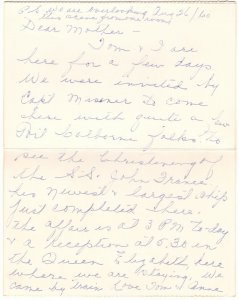 P.S. We are overlooking Aug 26/60
this scene from our room
Dear Mother -
Tom & I are
here for a few days
We were invited by
Capt Misener to come
here with quite a few
Port Colborne folks to
see the Christening of
the S.S. John
his newest & largest ship
just completed here.
the affair is at 3 P.M. today
& a reception at 5.30 in
the Queen Elizabeth here
where we are staying. We
came by train Love Tom & Anna